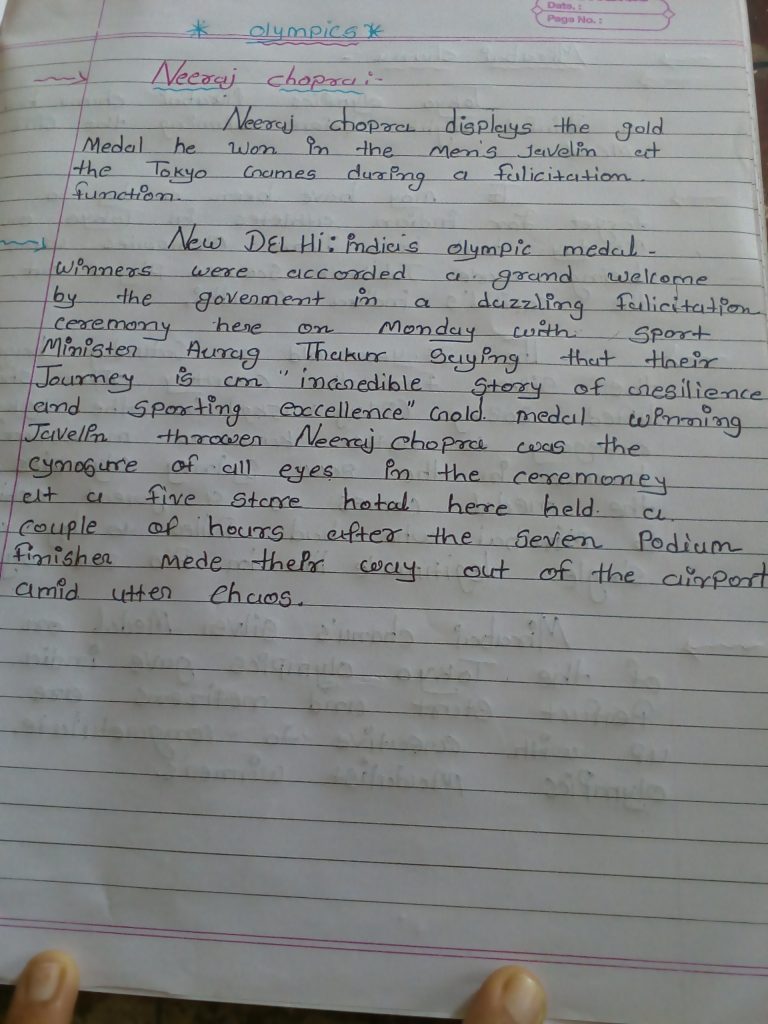 Date. :
Page No. :
* olympics *
Neeraj chopra :-
Neeraj chopra displays the gold
Medal he won in the men's javelin at
the Tokyo Games during a falicitation
function.
New DELHi: india's olympic medal -
winners were accorded a grand welcome
by the goverment in a dazzling falicitation
ceremony here on Monday with sport
Minister Aurag Thakur saying that their
Journey is an "incredible story of resilience
and sporting excellence" Gold medal winning
Javelin thrower Neeraj chopra was the
cynosure of all eyes in the ceremoney
at a five stare hotal here held a
couple of hours after the seven Podium
finisher mede their way out of the airport
amid utter chaos.